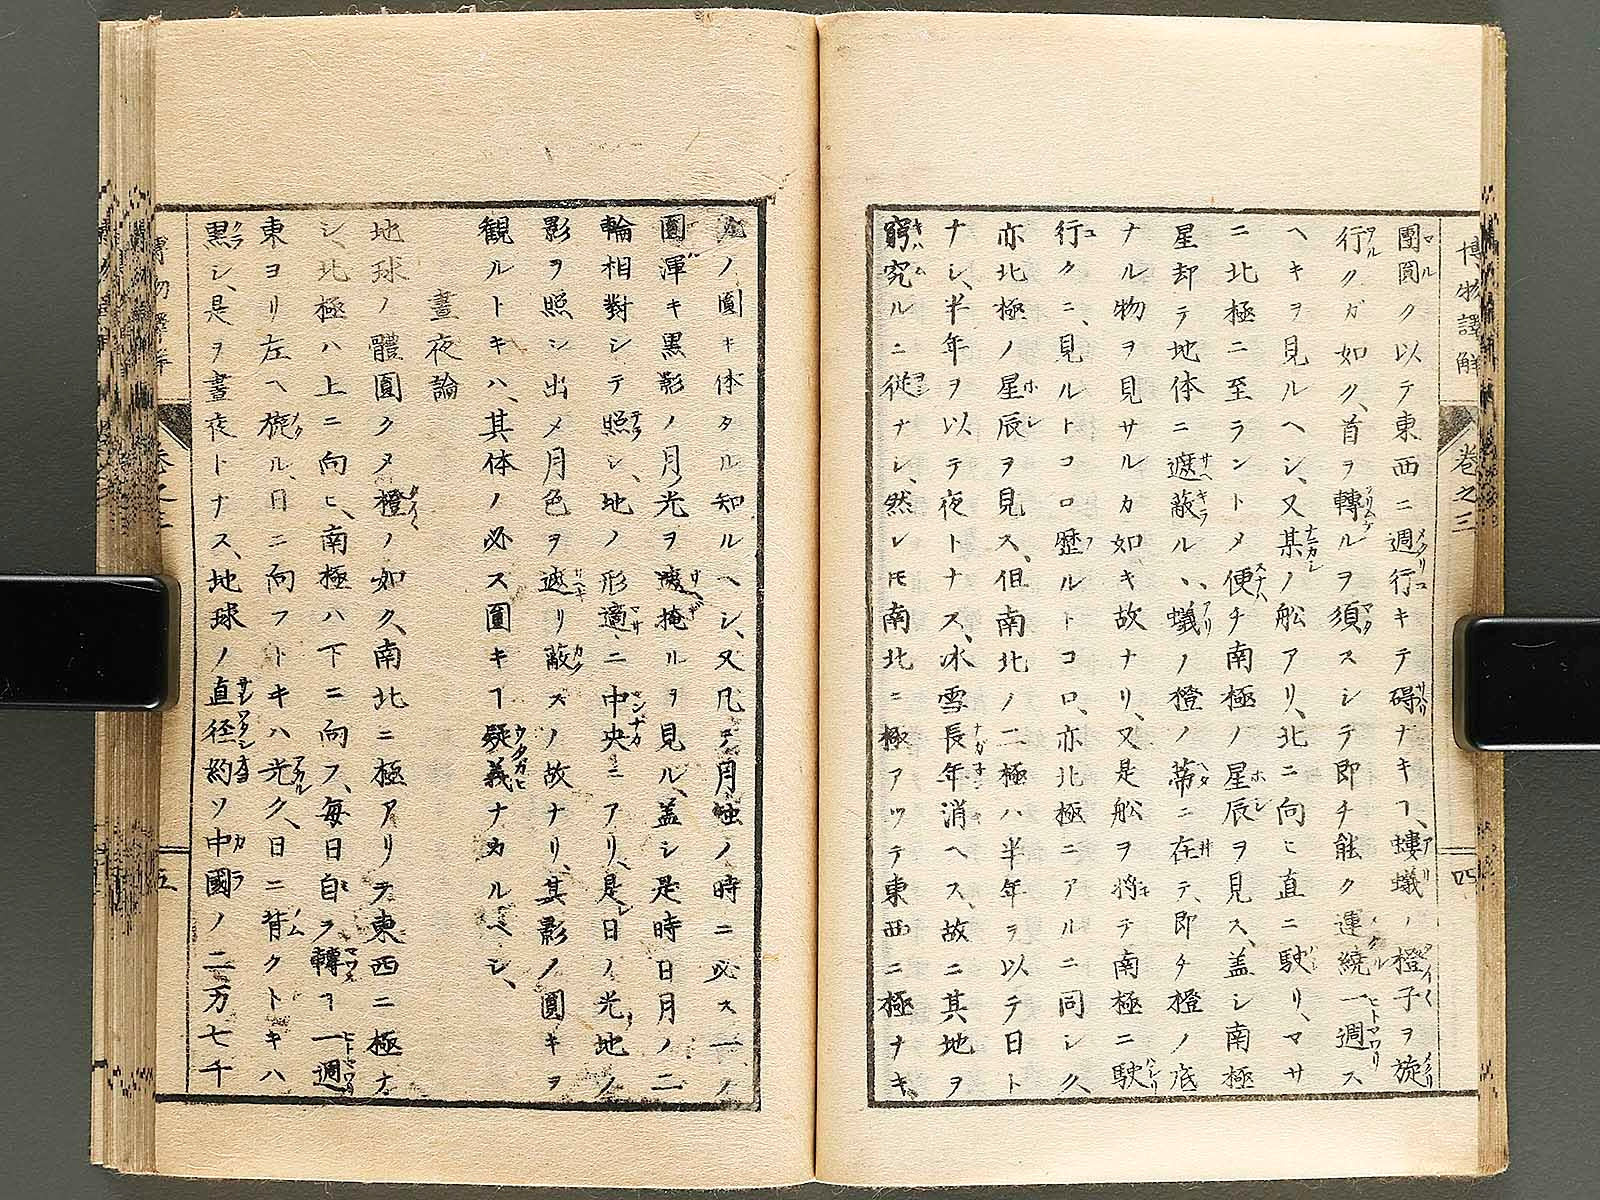 博物譯解 巻之三 四
團圓ク以テ東西ニ週行キテ碍ナキヿ、螻蟻ノ橙子ヲ旋
行クガ如ク、首ヲ轉ルヲ須スシテ即チ能ク連繞一週ス
ヘキヲ見ルヘシ、又某ノ舩アリ、北ニ向ヒ直ニ駛リ、マサ
ニ北極ニ至ラントメ便チ南極ノ星辰ヲ見ス、盖シ南極
星却テ地体ニ遮蔽ル、、蟻ノ橙ノ蒂ニ在テ、即チ橙ノ底
ナル物ヲ見サルカ如キ故ナリ、又是舩ヲ将テ南極ニ駛
行クニ、見ルトコロ歴ルトコロ、亦北極ニアルニ同シク
亦北極ノ星辰ヲ見ス、但南北ノ二極ハ半年ヲ以テ日ト
ナシ、半年ヲ以テ夜トナス、氷雪長年消ヘス、故ニ其地ヲ
窮究ルニ従ナシ、然レ𪜈南北ニ極アツテ東西ニ極ナキ、
ノ圓キ体タル知ルヘシ、又凡ソ月蝕ノ時ニ必ス一ノ
圓渾キ黒影ノ月光ヲ掩ルヲ見ル、盖シ是時日月ノ二
輪相對シテ照シ、地ノ形適ニ中央ニアリ、是日ノ光地ノ
影ヲ照シ出メ月色ヲ遮リ蔽スノ故ナリ、其影ノ圓キヲ
観ルトキハ、其体ノ必ス圓キヿ疑義ナカルヘシ、
晝夜論
地球ノ體圓クメ橙ノ如ク、南北ニ極アリテ東西ニ極ナ
シ、北極ハ上ニ向ヒ、南極ハ下ニ向フ、毎日自ラ轉ヿ一週
東ヨリ左ヘ旋ル、日ニ向フトキハ光ク、日ニ背クトキハ
黒シ、是ヲ晝夜トナス、地球ノ直径約ソ中國ノ二万七千
五